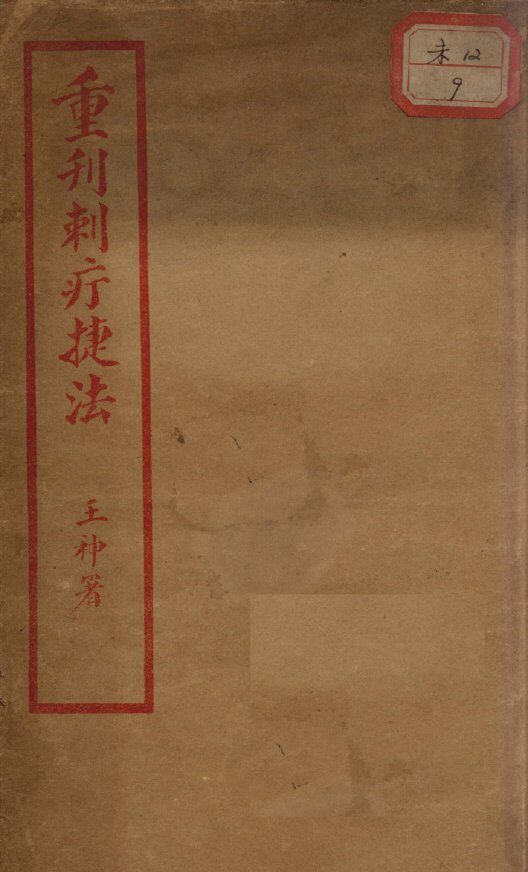 重刋刺疔捷法
王神署
未12
9